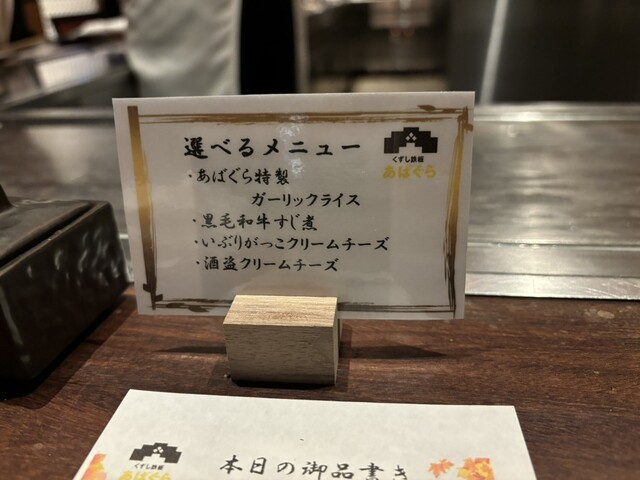 選べるメニュー
くずし鉄板
あばぐら
・あばぐら特製
ガーリックライス
・黒毛和牛すじ煮
・いぶりがっこクリームチーズ
・酒盗クリームチーズ
くずし鉄板
あばぐら
本日の御品書き